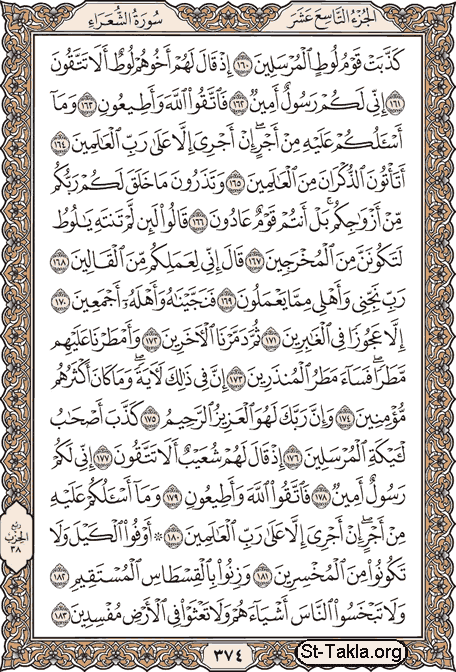 الجزء التاسع عشر
سورة الشعراء
كَذَّبَتْ قَوْمُ لُوطٍ ٱلْمُرْسَلِينَ ١٦٠ إِذْ قَالَ لَهُمْ أَخُوهُمْ لُوطٌ أَلَا تَتَّقُونَ
١٦١ إِنِّي لَكُمْ رَسُولٌ أَمِينٌ ١٦٢ فَٱتَّقُوا۟ ٱللَّهَ وَأَطِيعُونِ ١٦٣ وَمَآ
أَسْـَٔلُكُمْ عَلَيْهِ مِنْ أَجْرٍ ۖ إِنْ أَجْرِيَ إِلَّا عَلَىٰ رَبِّ ٱلْعَٰلَمِينَ ١٦٤
أَتَأْتُونَ ٱلذُّكْرَانَ مِنَ ٱلْعَٰلَمِينَ ١٦٥ وَتَذَرُونَ مَا خَلَقَ لَكُمْ رَبُّكُم
مِّنْ أَزْوَٰجِكُم ۚ بَلْ أَنتُمْ قَوْمٌ عَادُونَ ١٦٦ قَالُوا۟ لَئِن لَّمْ تَنتَهِ يَٰلُوطُ
لَتَكُونَنَّ مِنَ ٱلْمُخْرَجِينَ ١٦٧ قَالَ إِنِّي لِعَمَلِكُم مِّنَ ٱلْقَالِينَ ١٦٨
رَبِّ نَجِّنِي وَأَهْلِي مِمَّا يَعْمَلُونَ ١٦٩ فَنَجَّيْنَٰهُ وَأَهْلَهُۥٓ أَجْمَعِينَ ١٧٠
إِلَّا عَجُوزًا فِي ٱلْغَٰبِرِينَ ١٧١ ثُمَّ دَمَّرْنَا ٱلْـَٔاخَرِينَ ١٧٢ وَأَمْطَرْنَا عَلَيْهِم
مَّطَرًا ۖ فَسَآءَ مَطَرُ ٱلْمُنذَرِينَ ١٧٣ إِنَّ فِي ذَٰلِكَ لَـَٔايَةً ۖ وَمَا كَانَ أَكْثَرُهُم
مُّؤْمِنِينَ ١٧٤ وَإِنَّ رَبَّكَ لَهُوَ ٱلْعَزِيزُ ٱلرَّحِيمُ ١٧٥ كَذَّبَ أَصْحَٰبُ
لْـَٔيْكَةِ ٱلْمُرْسَلِينَ ١٧٦ إِذْ قَالَ لَهُمْ شُعَيْبٌ أَلَا تَتَّقُونَ ١٧٧ إِنِّي لَكُمْ
رَسُولٌ أَمِينٌ ١٧٨ فَٱتَّقُوا۟ ٱللَّهَ وَأَطِيعُونِ ١٧٩ وَمَآ أَسْـَٔلُكُمْ عَلَيْهِ
مِنْ أَجْرٍ ۖ إِنْ أَجْرِيَ إِلَّا عَلَىٰ رَبِّ ٱلْعَٰلَمِينَ ١٨٠ ۞ أَوْفُوا۟ ٱلْكَيْلَ وَلَا
تَكُونُوا۟ مِنَ ٱلْمُخْسِرِينَ ١٨١ وَزِنُوا۟ بِٱلْقِسْطَاسِ ٱلْمُسْتَقِيمِ ١٨٢
وَلَا تَبْخَسُوا۟ ٱلنَّاسَ أَشْيَآءَهُمْ وَلَا تَعْثَوْا۟ فِي ٱلْأَرْضِ مُفْسِدِينَ ١٨٣
ربع
الحزب
٣٨
٣٧٤
St-Takla.org